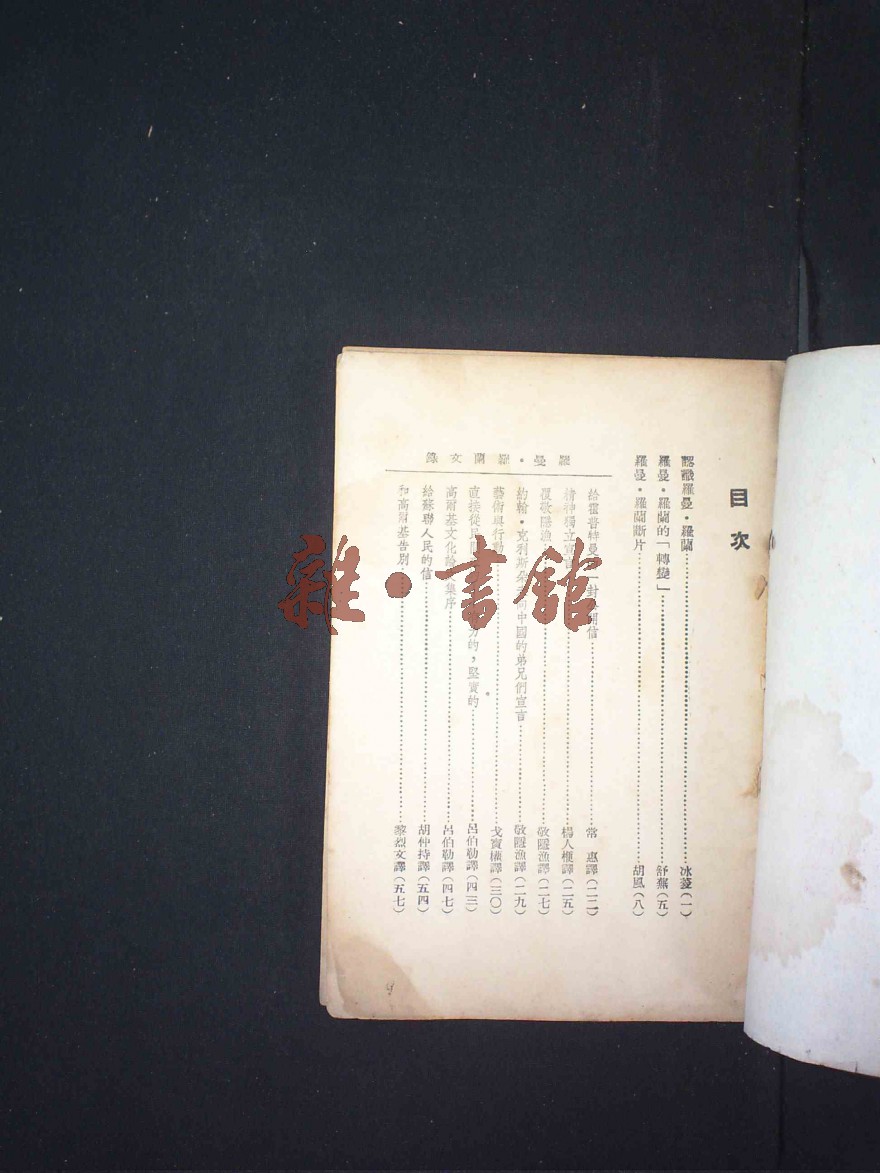 目次
認識羅曼·羅蘭 冰菱(一)
羅曼·羅蘭的「轉變」 舒蕪(五)
羅曼·羅蘭斷片 胡風(八)
羅曼·羅蘭文錄
給霍普特曼 封 開信 常惠譯(二二)
精神獨立宣言 楊人楩譯(二五)
覆敬隱漁 敬隱漁譯(二七)
約翰·克利斯朵 向中國的弟兄們宣言 敬隱漁譯(二九)
藝術與行動 戈寶權譯(三〇)
直接從民 力的,堅實的 呂伯勒譯(四三)
高爾基文化論文集序 呂伯勒譯(四七)
給蘇聯人民的信 胡仲持譯(五四)
和高爾基告別 黎烈文譯(五七)
雜·書館